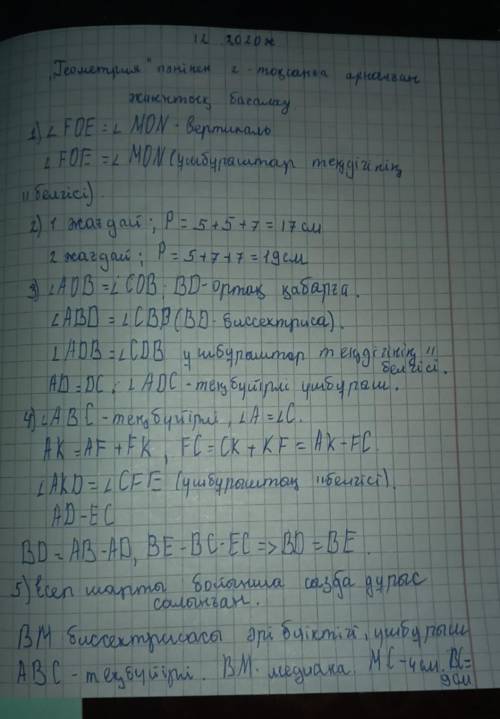 12 2020ж
"Геометрия" пәнінен 2-тоқсанға арналған
жиынтық бағалау
1) ∠FOE = ∠MON - вертикаль
∠FOE = ∠MON (үшбұраштар теңдігінің
"белгісі).
2) 1 жағдай; P = 5 + 5 + 7 = 17 см
2 жағдай; P = 5 + 7 + 7 = 19 см
3) ∠ADB = ∠CDB; BD - ортақ қабарға.
∠ABD = ∠CBD (BD - биссектриса).
∠ADB = ∠CDB үшбұраштар теңдігінің "
белгісі.
AD = DC; ∠ADC - теңбүйірлі үшбұраш.
4) ∠ABC - теңбүйірлі, ∠A = ∠C.
AK = AF + FK, FC = CK + KF = AK - FC.
∠AKD = ∠CFE (үшбұрыштаң "белгісі).
AD - EC
BD = AB - AD, BE - BC - EC => BD = BE.
5) Есеп шарты бойынша сызба дұрыс
салынған.
BM биссектрисасы әрі биіктігі, үшбұрыш
ABC - теңбүйірлі. BM - медиана. MC - 4 см. BC =
9 см